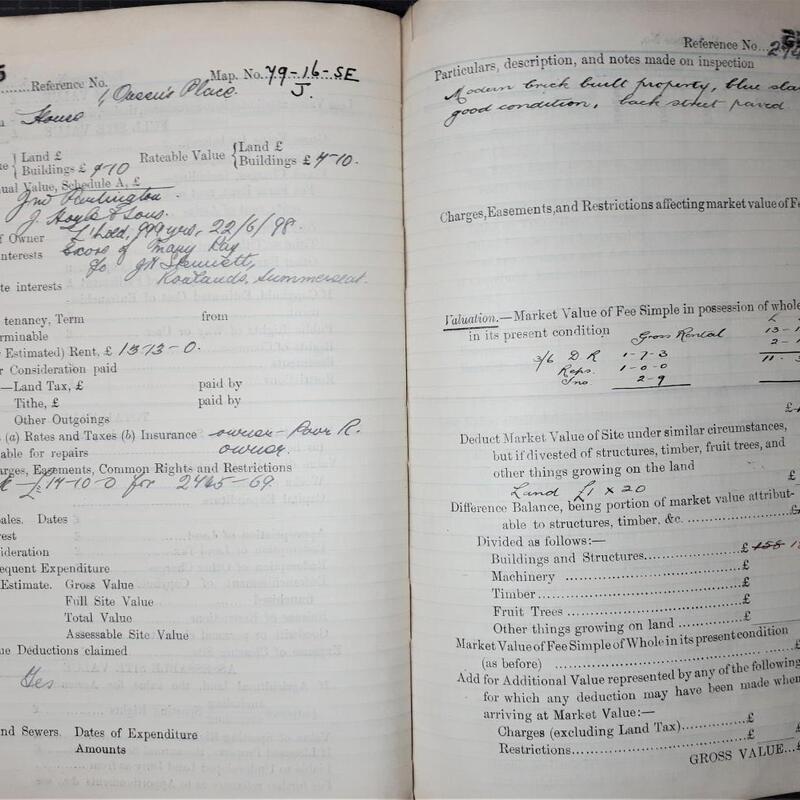 5
Reference No. Map. No. 79-16-SE
1, Queen's Place. J.
House
Land £ Rateable Value Land £
Buildings £ 4-10 Buildings £ 4-10.
ual Value, Schedule A, £
Jno
J. Hoyle & Sons.
f Owner L'hold, 999 yrs, 22/6/98.
nterests Exors of Mary Kay
te interests
c/o J H
Summerseat.
tenancy, Term from
erminable
Estimated) Rent, £ 13-13-0.
r Consideration paid
—Land Tax, £ paid by
Tithe, £ paid by
Other Outgoings
(a) Rates and Taxes (b) Insurance owner - Poor R.
able for repairs owner.
arges, Easements, Common Rights and Restrictions
£14-10-0 for 2465-69.
ales. Dates
rest
ideration
equent Expenditure
Estimate. Gross Value
Full Site Value
Total Value
Assessable Site Value
ue Deductions claimed
Yes
nd Sewers. Dates of Expenditure
Amounts
Reference No.
Particulars, description, and notes made on inspection
Modern brick built property, blue sla
good condition, back street paved
Charges, Easements, and Restrictions affecting market value of Fe
Valuation.—Market Value of Fee Simple in possession of whole
in its present condition Gross Rental 13-1
3/6 D R 1-7-3 2-1
Reps. 1-0-0 11-3
Ins 2-9
£
Deduct Market Value of Site under similar circumstances,
but if divested of structures, timber, fruit trees, and
other things growing on the land £
Land £1 x 20
Difference Balance, being portion of market value attribut-
able to structures, timber, &c. £
Divided as follows:—
Buildings and Structures £ 158
Machinery £
Timber £
Fruit Trees £
Other things growing on land £
Market Value of Fee Simple of Whole in its present condition
(as before) £
Add for Additional Value represented by any of the following
for which any deduction may have been made when
arriving at Market Value:—
Charges (excluding Land Tax) £
Restrictions £
GROSS VALUE...£